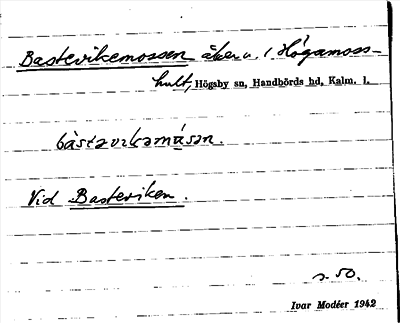 Bastevikemossen åker u. / Högamoss-
hult, Högsby sn, Handbörds hd, Kalm. l.
bàstavikamåsan.
Vid Basteviken.
s. 50.
Ivar Modéer 1942